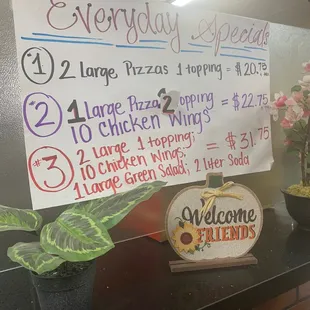 Everyday Specials
① 2 Large Pizzas 1 topping = $20.75
② 1 Large Pizza 2 topping = $22.75
10 Chicken Wings
#3 2 large 1 topping; = $31.75
10 Chicken Wings;
1 Large Green Salad; 2 liter Soda
Welcome
FRIENDS